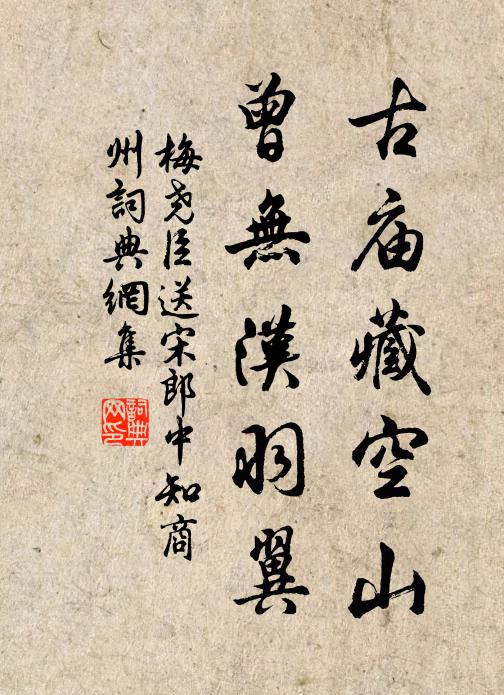 古庙藏空山
曾無漢羽翼
梅堯臣送宋郎中知商
州詞典網集
詞典
网印